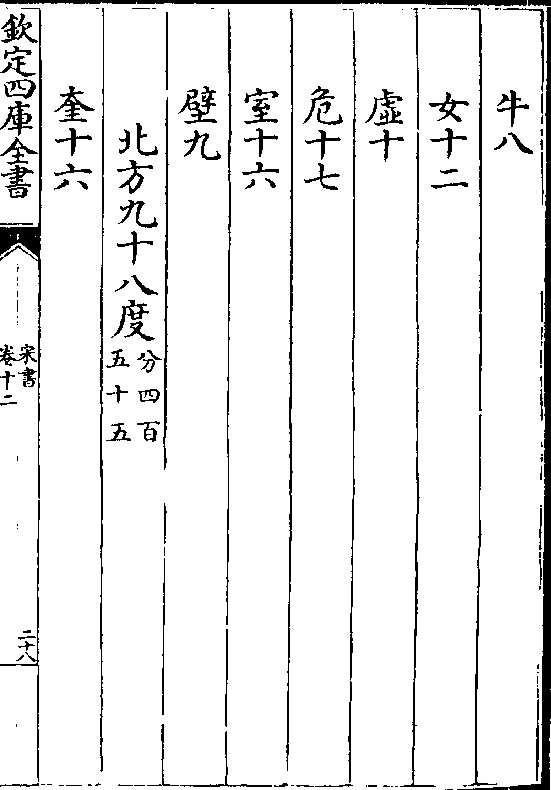 牛八
女十二
虛十
危十七
室十六
壁九
北方九十八度分四百五十五
奎十六
欽定四庫全書
宋書
卷十二
二十八